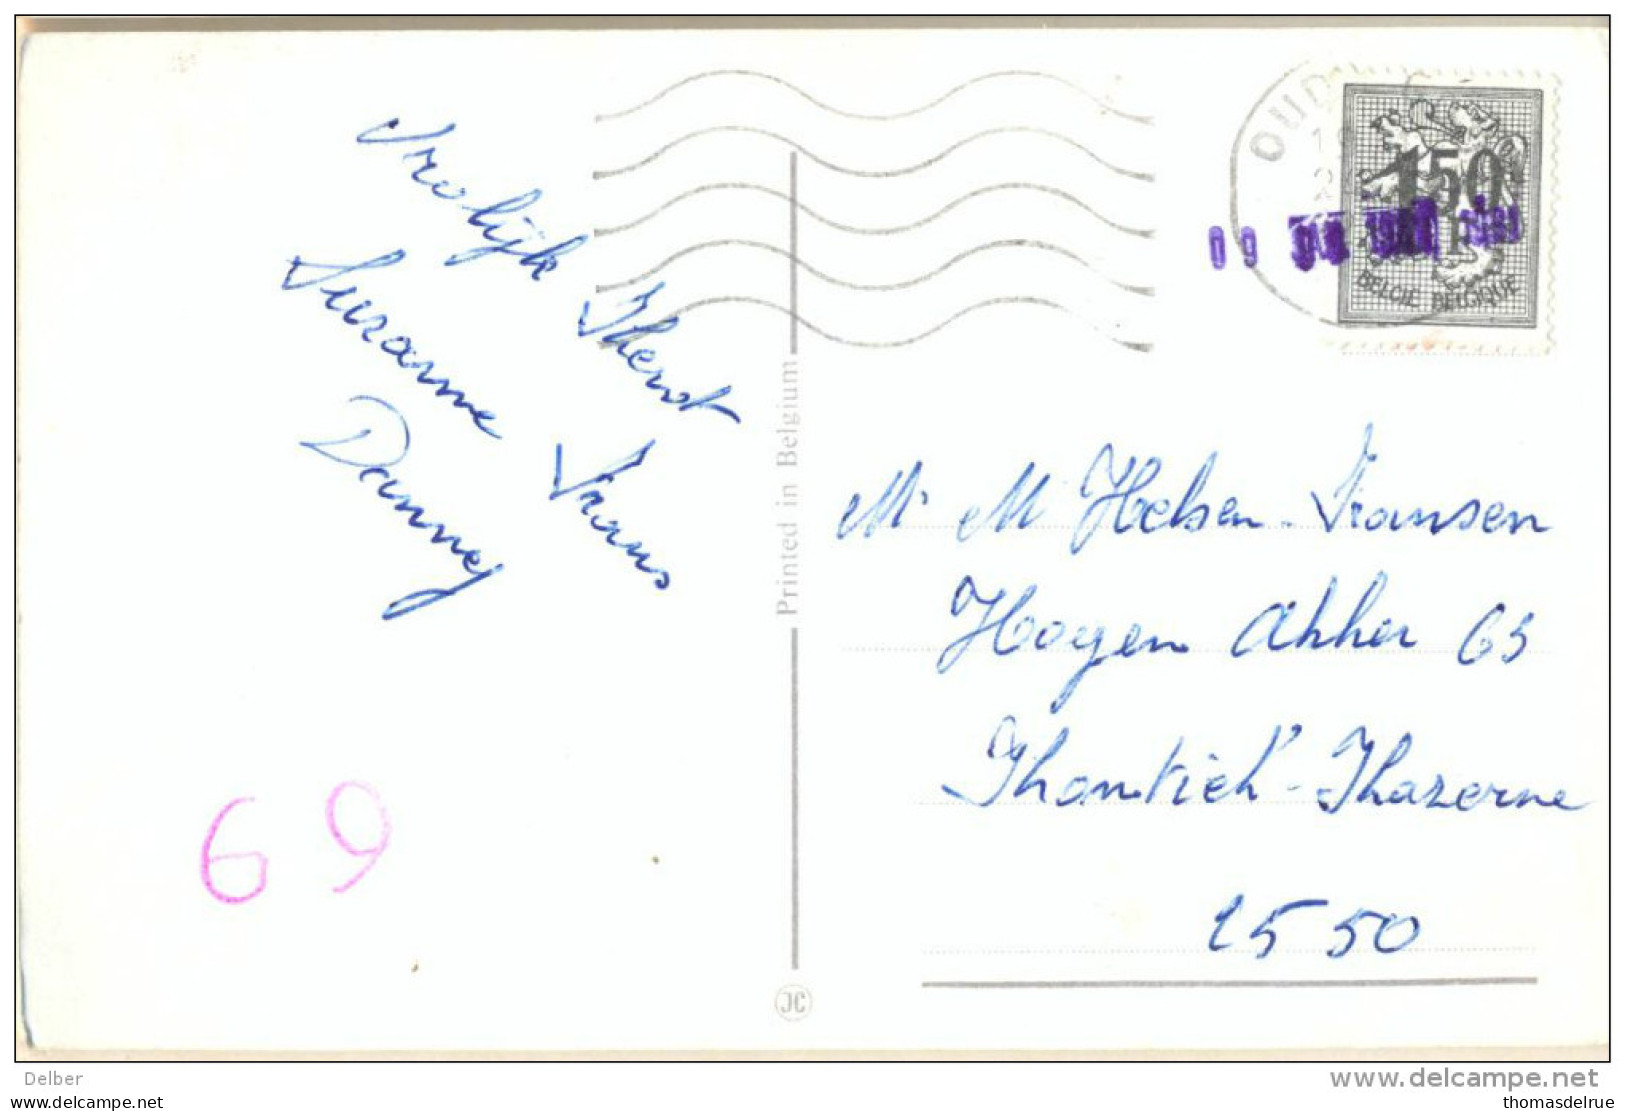 Vrolijk Kherst
Suzanne Frans
Danney
69
Printed in Belgium
JC
OUD
1,50
F
BELGIE BELGIQUE
09
M. M Helsen-Fransen
Hogen Akker 65
Khontich-Khazerne
2550
Delber
www.delcampe.net
my first name is
thomasdelrue